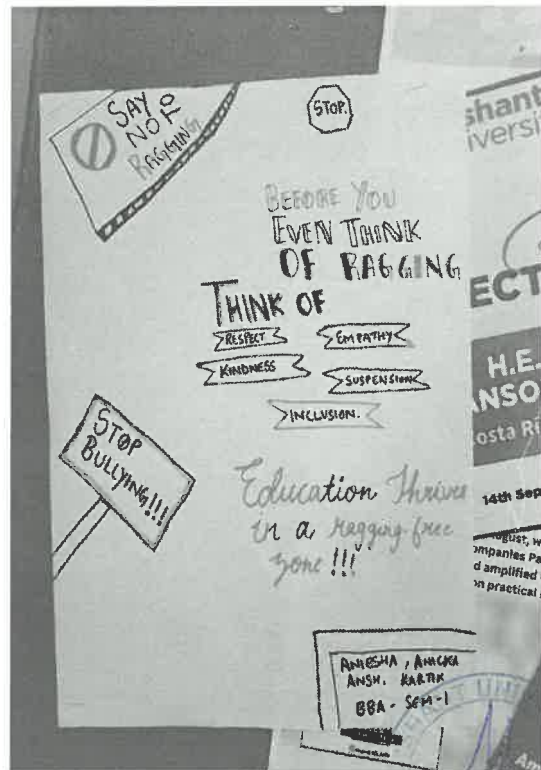 SAY
NO TO
RAGGING
STOP.
BEFORE YOU
EVEN THINK
OF RAGGING
THINK OF
RESPECT
EMPATHY
KINDNESS
SUSPENSION
INCLUSION.
STOP
BULLYING!!!
Education Thrives
in a ragging-free
zone!!!
ANIESHA, ANICKA
ANSH, KARTIK
BBA - SEM-1
shant
iversi
ECT
H.E.
ANSO
osta Ri
14th Sep
ugust, w
ompanies Pa
d amplified
on practical
Am